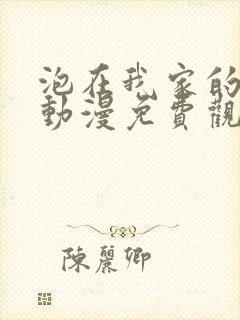 泡在我家的
動漫免費觀
陳麗卿